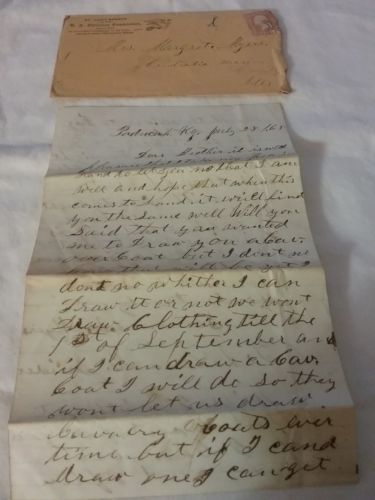 St. Louis Branch
U. S. Christian Commission,
Mrs. Margrate Myers
Paducah Ky July 28 / 65
Dear Brother it is now
hand to let you no that I am
well and hope that when this
comes to hand it will find
you the same well Will you
Said that you wanted
me to Draw you a Cav.
over Coat but I don't no
dont no whither I can
Draw it or not we wont
Draw Clothing till the
1st of September and
if I can draw a Cav.
Coat I will do so they
wont let us draw
Cavalry Coats ever
time but if I cand
draw one I can get